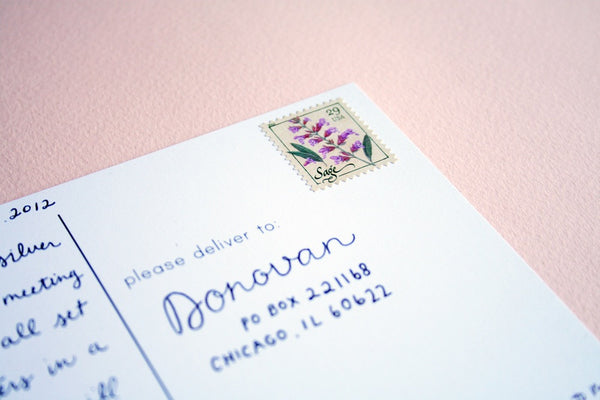 .2012
silver
meeting
all set
in a
29
USA
Sage
please deliver to:
Donovan
PO BOX 221168
CHICAGO, IL 60622